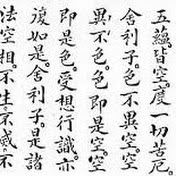 五蘊皆空。度一切苦厄。
舍利子。色不異空。空
異不色。色即是空。空
即是色。受想行識。亦
復如是。舍利子。是諸
法空相。不生不滅。不